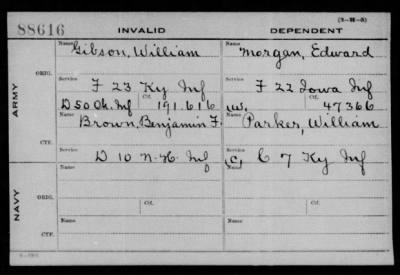 88616 INVALID DEPENDENT (3-M-5)
Name Gibson, William Name Morgan, Edward
ORIG.
Service F 23 Ky Inf Service F 22 Iowa Inf
D 50 Oh. Inf Ctf. 191.616 (W. Ctf. 47366
ARMY
Name Brown, Benjamin F. Name Parker, William
CTF.
D 10 N.H. Inf (C, C 7 Ky Inf
Name Name
ORIG.
NAVY
Service Ctf. Service Ctf.
Name Name
CTF.